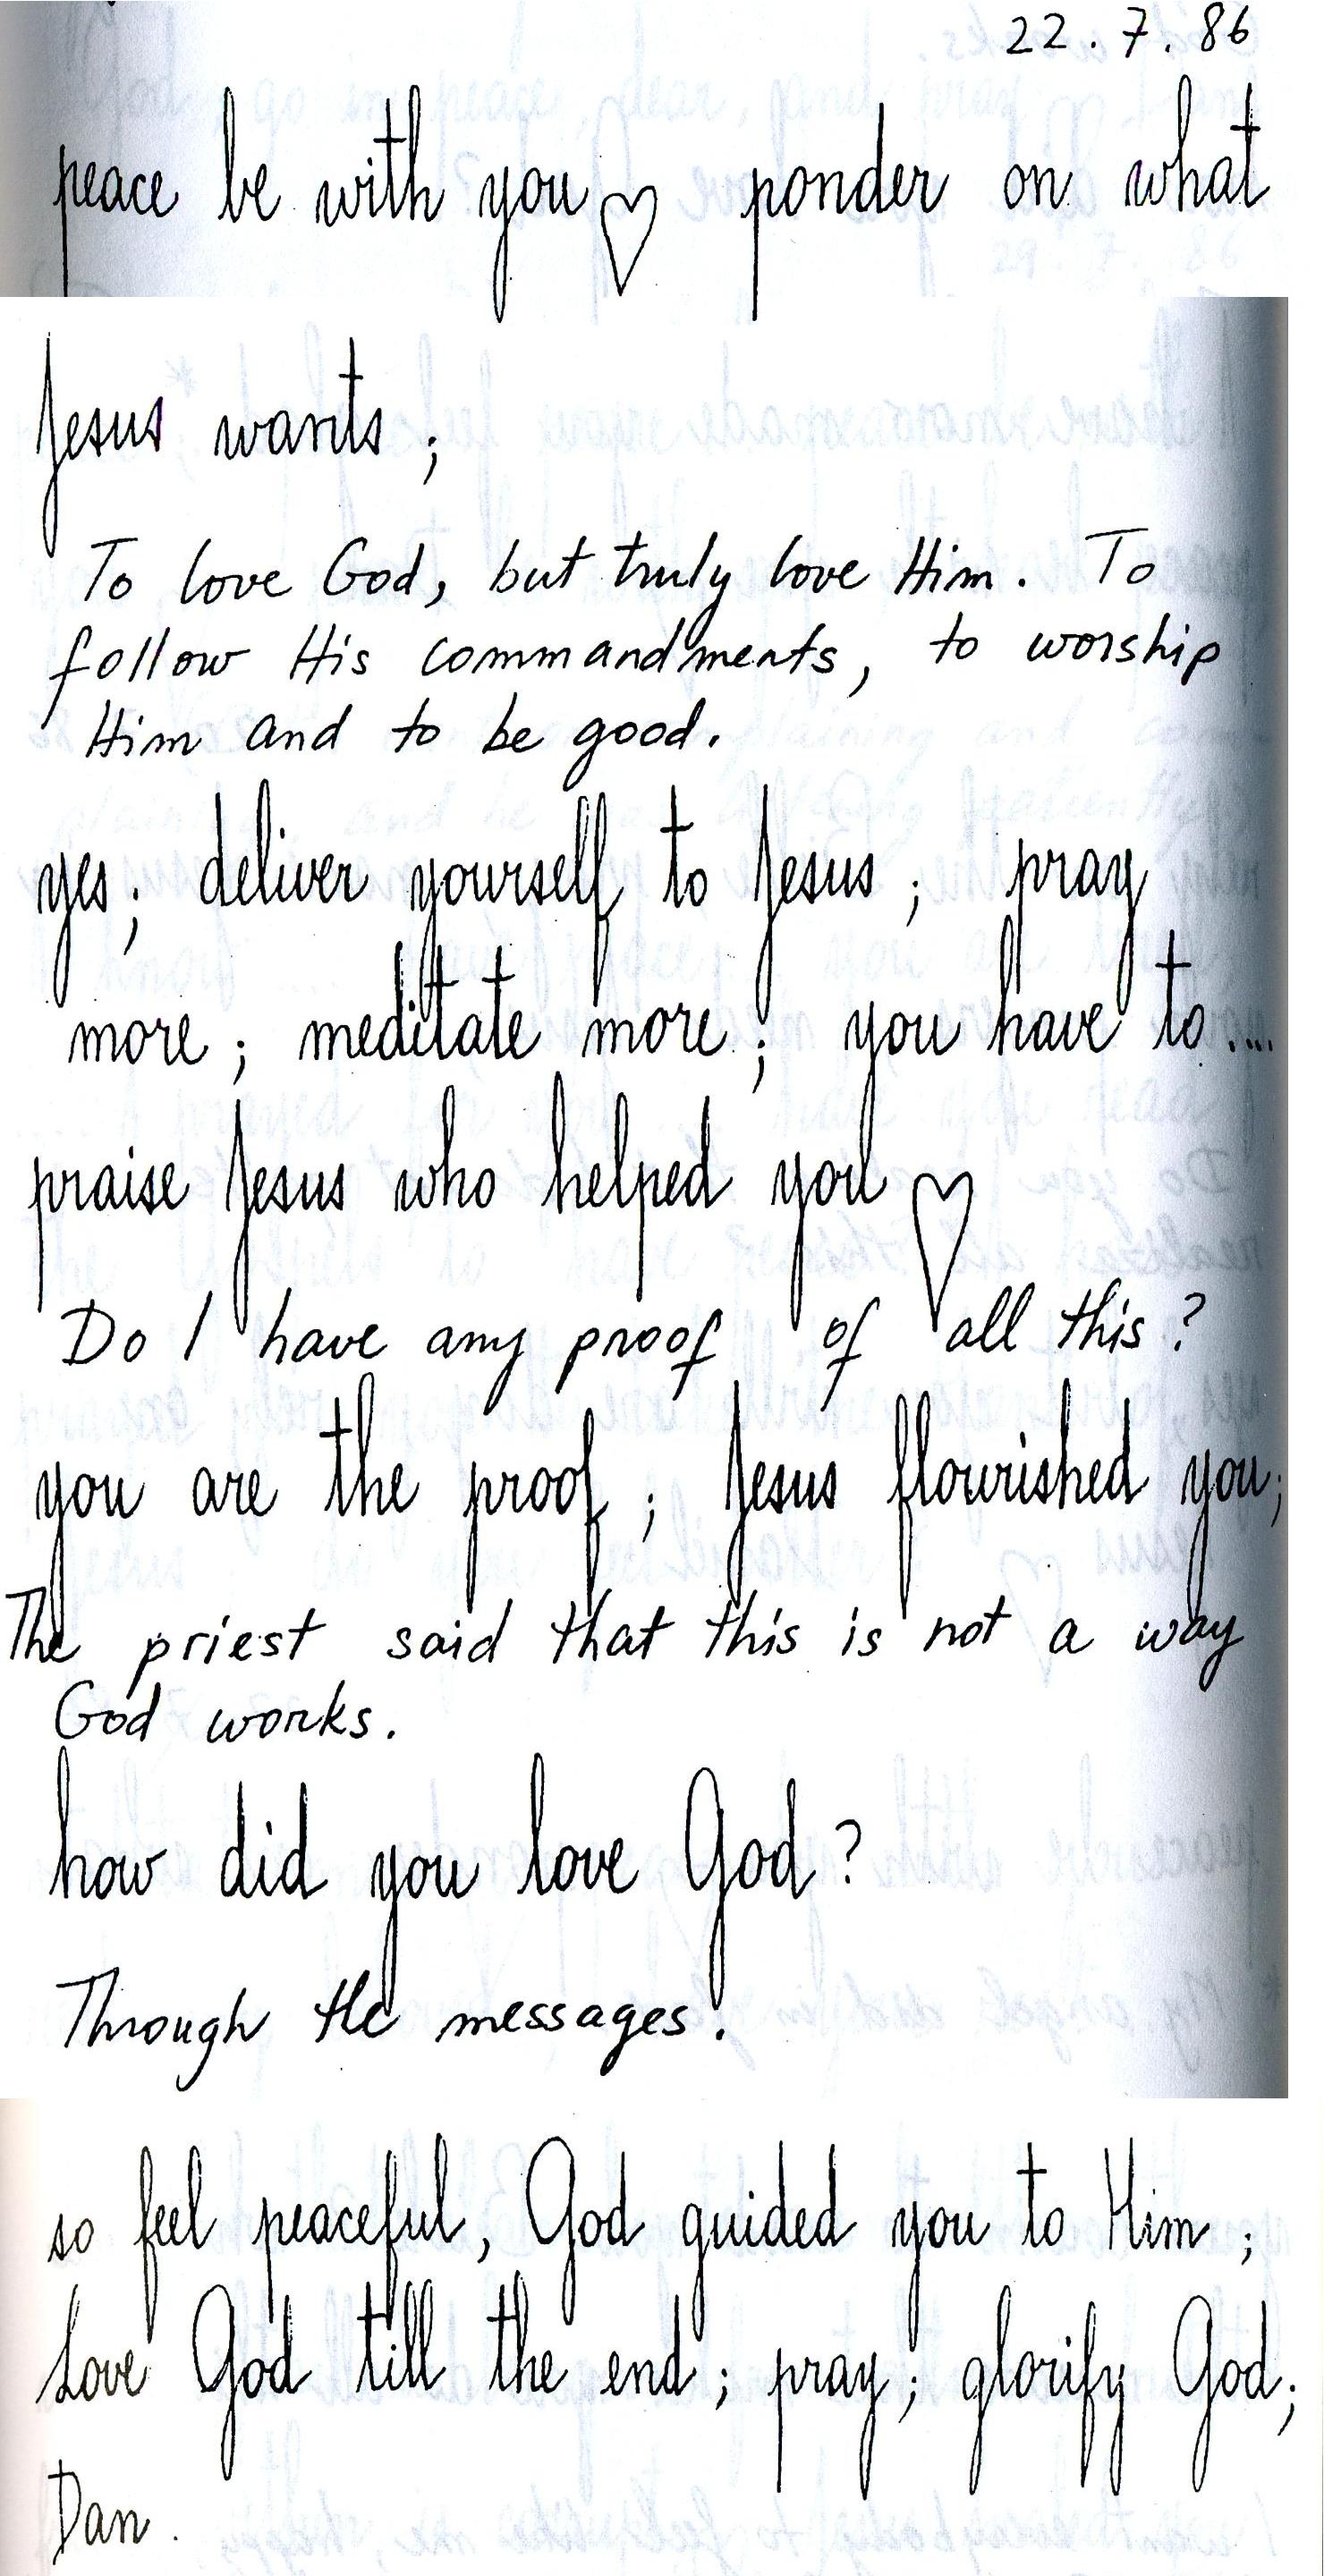 22.7.86
peace be with you ♡ ponder on what
Jesus wants;
To love God, but truly love Him. To
follow His commandments, to worship
Him and to be good.
yes; deliver yourself to Jesus; pray
more; meditate more; you have to....
praise Jesus who helped you ♡
Do I have any proof of all this?
you are the proof; Jesus flourished you;
The priest said that this is not a way
God works.
how did you love God?
Through the messages.
so feel peaceful, God guided you to Him;
love God till the end; pray; glorify God;
Dan.